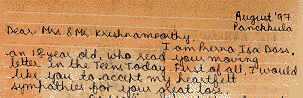 August '97
Panchkula
Dear Mr & Mr. Krishnamoorthy,
I am Prerna Isa Dass,
an 18 year old, who read your moving
letter in the Teens Today. First of all, I would
like you to accept my heartfelt
sympathies for your great loss